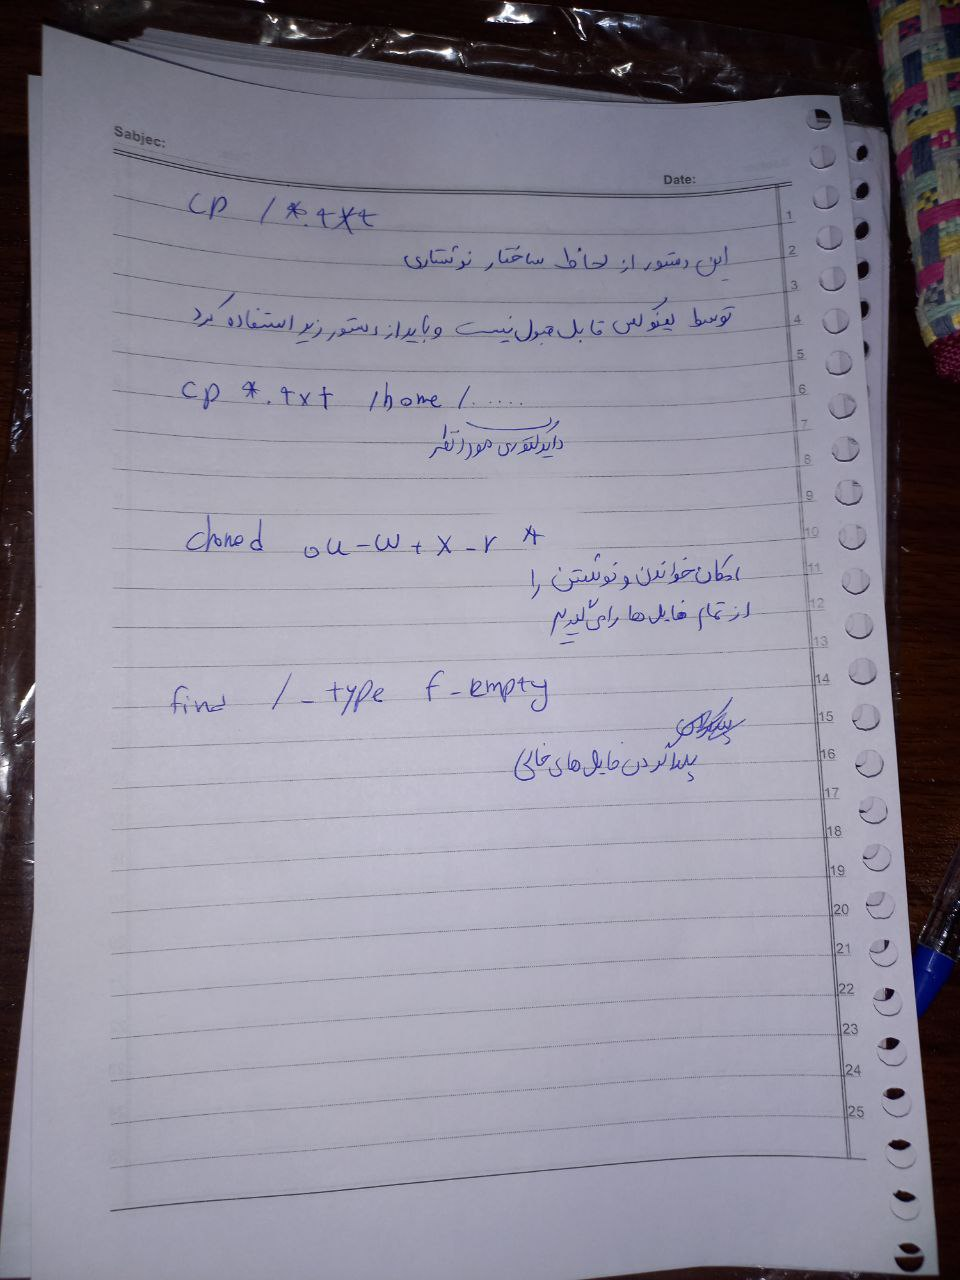 Sabjec:
Date:
cp / *.txt
این دستور از لحاظ ساختار نوشتاری
توسط لینوکس قابل قبول نیست و باید از دستور زیر استفاده کرد
cp *.txt /home/.....
دایرکتوری مورد نظر
chmod ou-w+x-r *
امکان خواندن و نوشتن را
از تمام فایل ها را می گیریم
find / -type f -empty
پیدا کردن فایل های خالی
1
2
3
4
5
6
7
8
9
10
11
12
13
14
15
16
17
18
19
20
21
22
23
24
25